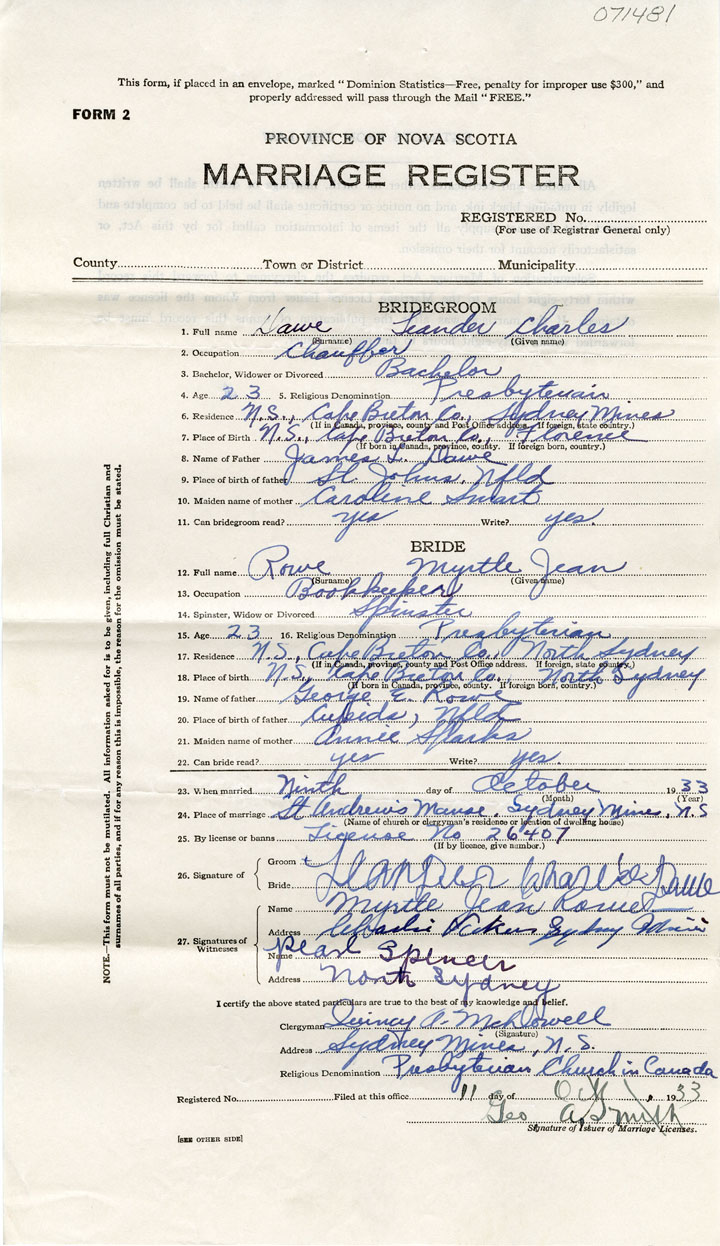 071481
This form, if placed in an envelope, marked "Dominion Statistics—Free, penalty for improper use $300," and
properly addressed will pass through the Mail "FREE."
FORM 2
PROVINCE OF NOVA SCOTIA
MARRIAGE REGISTER
REGISTERED No.
(For use of Registrar General only)
County Town or District Municipality
BRIDEGROOM
1. Full name Dawe Leander Charles
(Surname) (Given name)
2. Occupation Chauffer
3. Bachelor, Widower or Divorced Bachelor
4. Age 23 5. Religious Denomination Presbyterian
6. Residence N.S., Cape Breton Co., Sydney Mines
(If in Canada, province, county and Post Office address. If foreign, state country.)
7. Place of Birth N.S., Cape Breton Co., Florence
(If born in Canada, province, county. If foreign born, country.)
8. Name of Father James L. Dawe
9. Place of birth of father St. Johns, Nfld
10. Maiden name of mother Caroline Smart
11. Can bridegroom read? yes Write? yes.
BRIDE
12. Full name Rowe Myrtle Jean
(Surname) (Given name)
13. Occupation Bookkeeper
14. Spinster, Widow or Divorced Spinster
15. Age 23 16. Religious Denomination Presbyterian
17. Residence N.S., Cape Breton Co., North Sydney
(If in Canada, province, county and Post Office address. If foreign, state country.)
18. Place of birth N.S., Cape Breton Co., North Sydney
(If born in Canada, province, county. If foreign born, country.)
19. Name of father George E. Rowe
20. Place of birth of father Cupids, Nfld
21. Maiden name of mother Annie Sparks
22. Can bride read? yes Write? yes.
23. When married Ninth day of October 1933
(Month) (Year)
24. Place of marriage St Andrew's Manse, Sydney Mines, N.S
(Name of church or clergyman's residence or location of dwelling house)
25. By license or banns License No 26407
(If by licence, give number.)
26. Signature of Groom Leander Charles Dawe
Bride Myrtle Jean Rowe
27. Signatures of Witnesses
Name Charlie Sydney Mines
Address
Name Pearl Spencer
Address North Sydney
I certify the above stated particulars are true to the best of my knowledge and belief.
Clergyman Quincy A. McDowell
(Signature)
Address Sydney Mines, N.S.
Religious Denomination Presbyterian Church in Canada
Registered No. Filed at this office 11 day of Oct, 1933
Geo A. Smith
Signature of Issuer of Marriage Licenses.
[SEE OTHER SIDE]
NOTE.—This form must not be mutilated. All information asked for is to be given, including full Christian and
surnames of all parties, and if for any reason this is impossible, the reason for the omission must be stated.